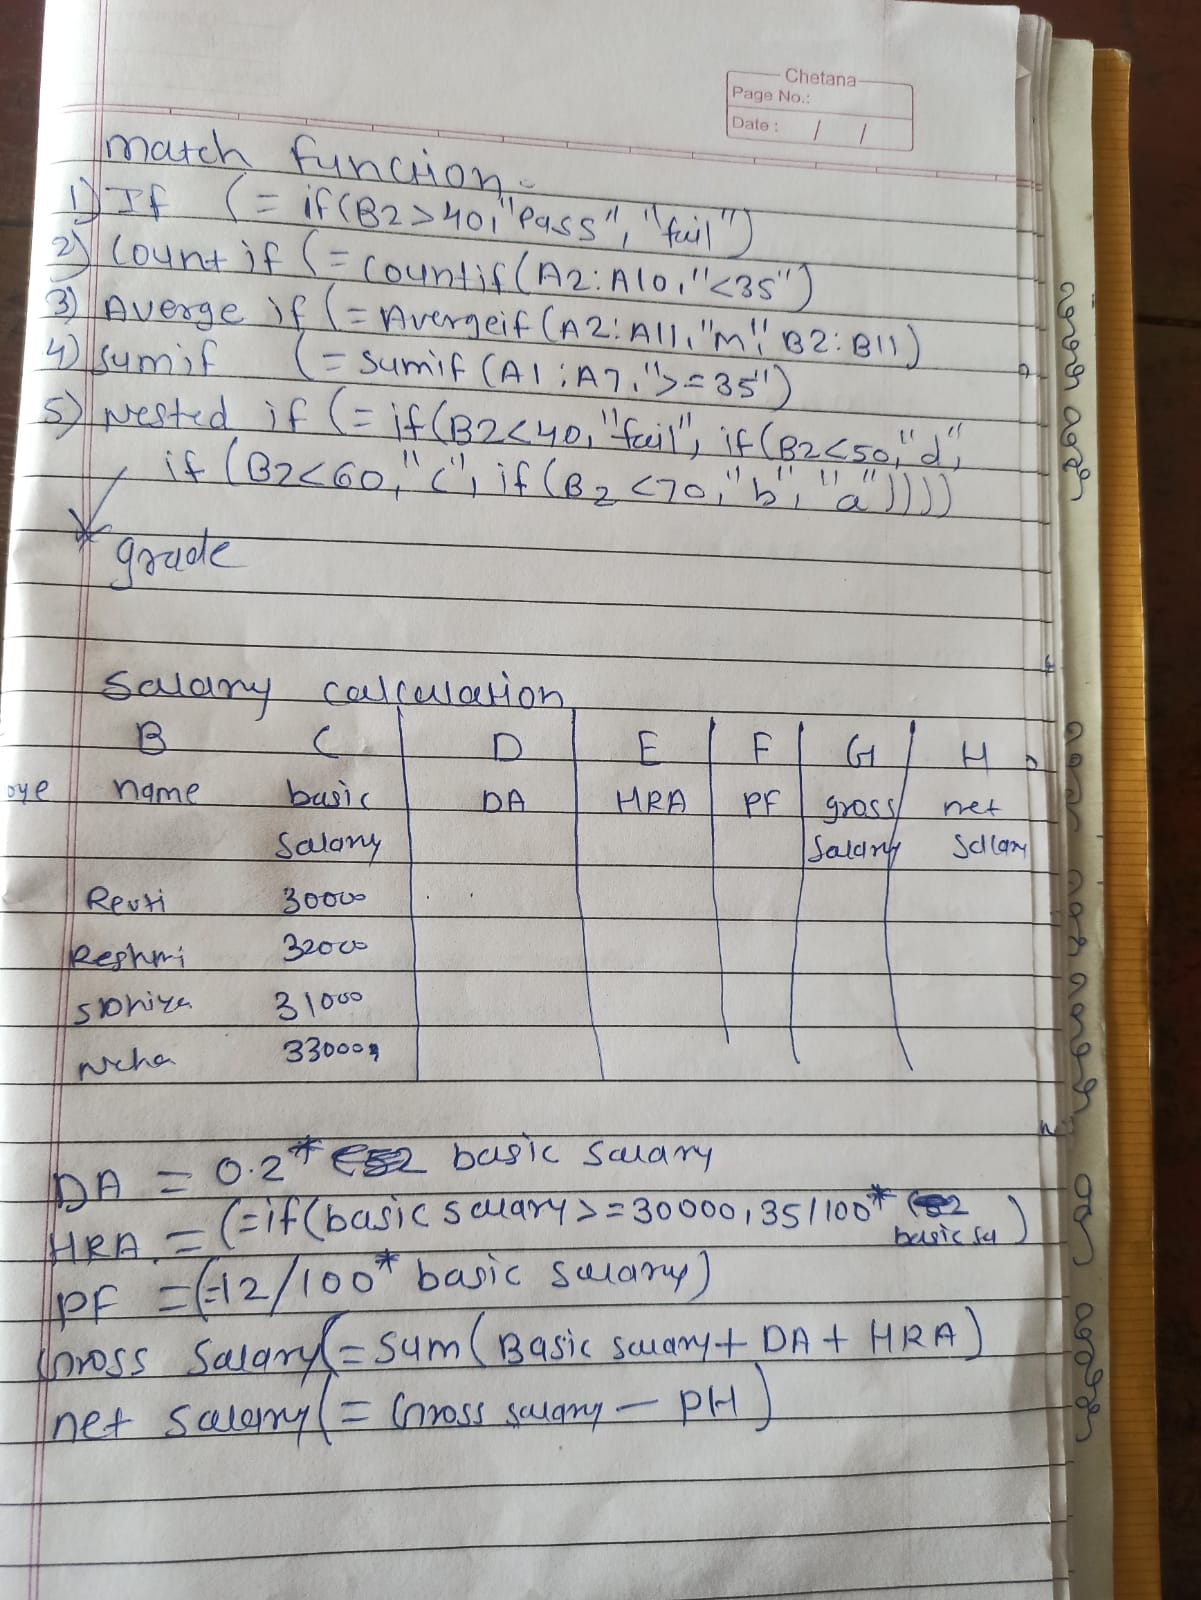 Chetana
Page No.:
Date : / /
match function -
1) If (= if(B2>40,"Pass", "fail")
2) Count if (= countif(A2:A10,"<35")
3) Averge if (= Avergeif(A2:A11,"m", B2:B11)
4) sumif (= sumif (A1:A7,">=35")
5) Nested if (= if(B2<40,"fail", if(B2<50,"d",
if (B2<60,"c", if(B2<70,"b","a"))))
grade
Salary calculation
B C D E F G H
oye name basic DA HRA PF gross net
Salary Salary Salary
Revti 30000
Reshmi 32000
31000
Neha 33000
DA = 0.2* basic salary
HRA = (=if(basic salary>=30000,35/100*
basic sal)
PF = (=12/100* basic salary)
Gross Salary(= Sum(Basic salary+ DA + HRA)
net salary(= Gross salary - PH)